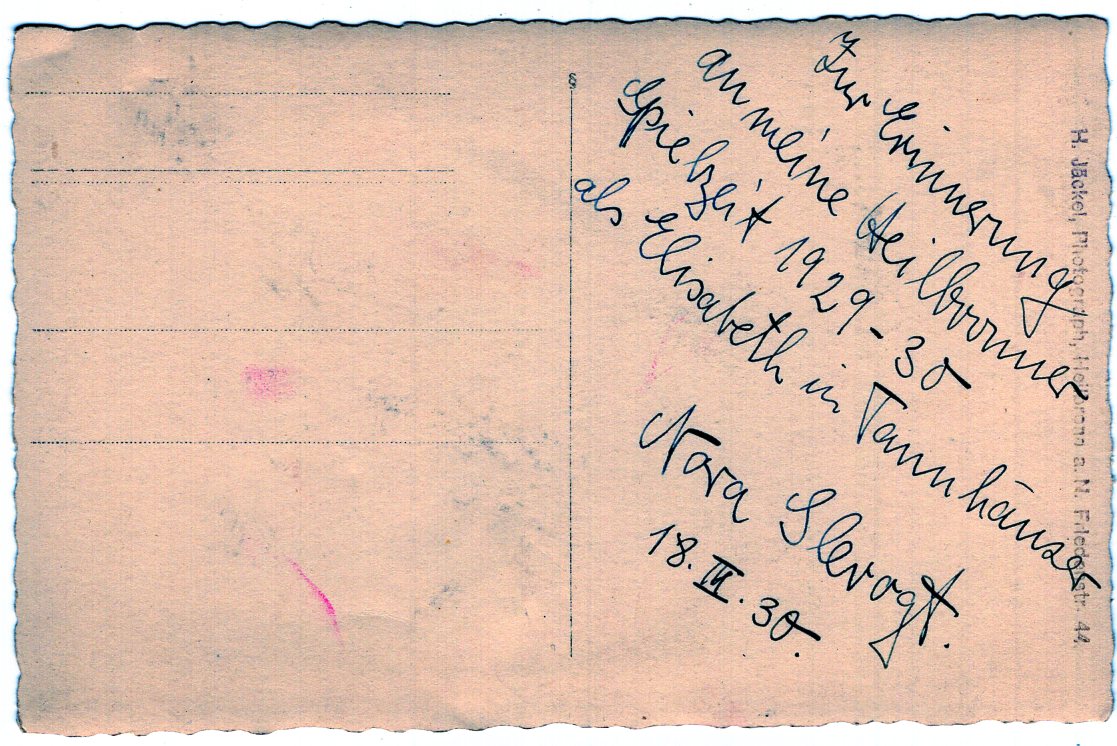 Zur Erinnerung
an meine Heilbronner
Spielzeit 1929-30
als Elisabeth in Tannhäuser
Nora Slevogt.
18.III.30.
H. Jäckel, Photograph, Heilbronn a. N. Friedenstr. 44.
§